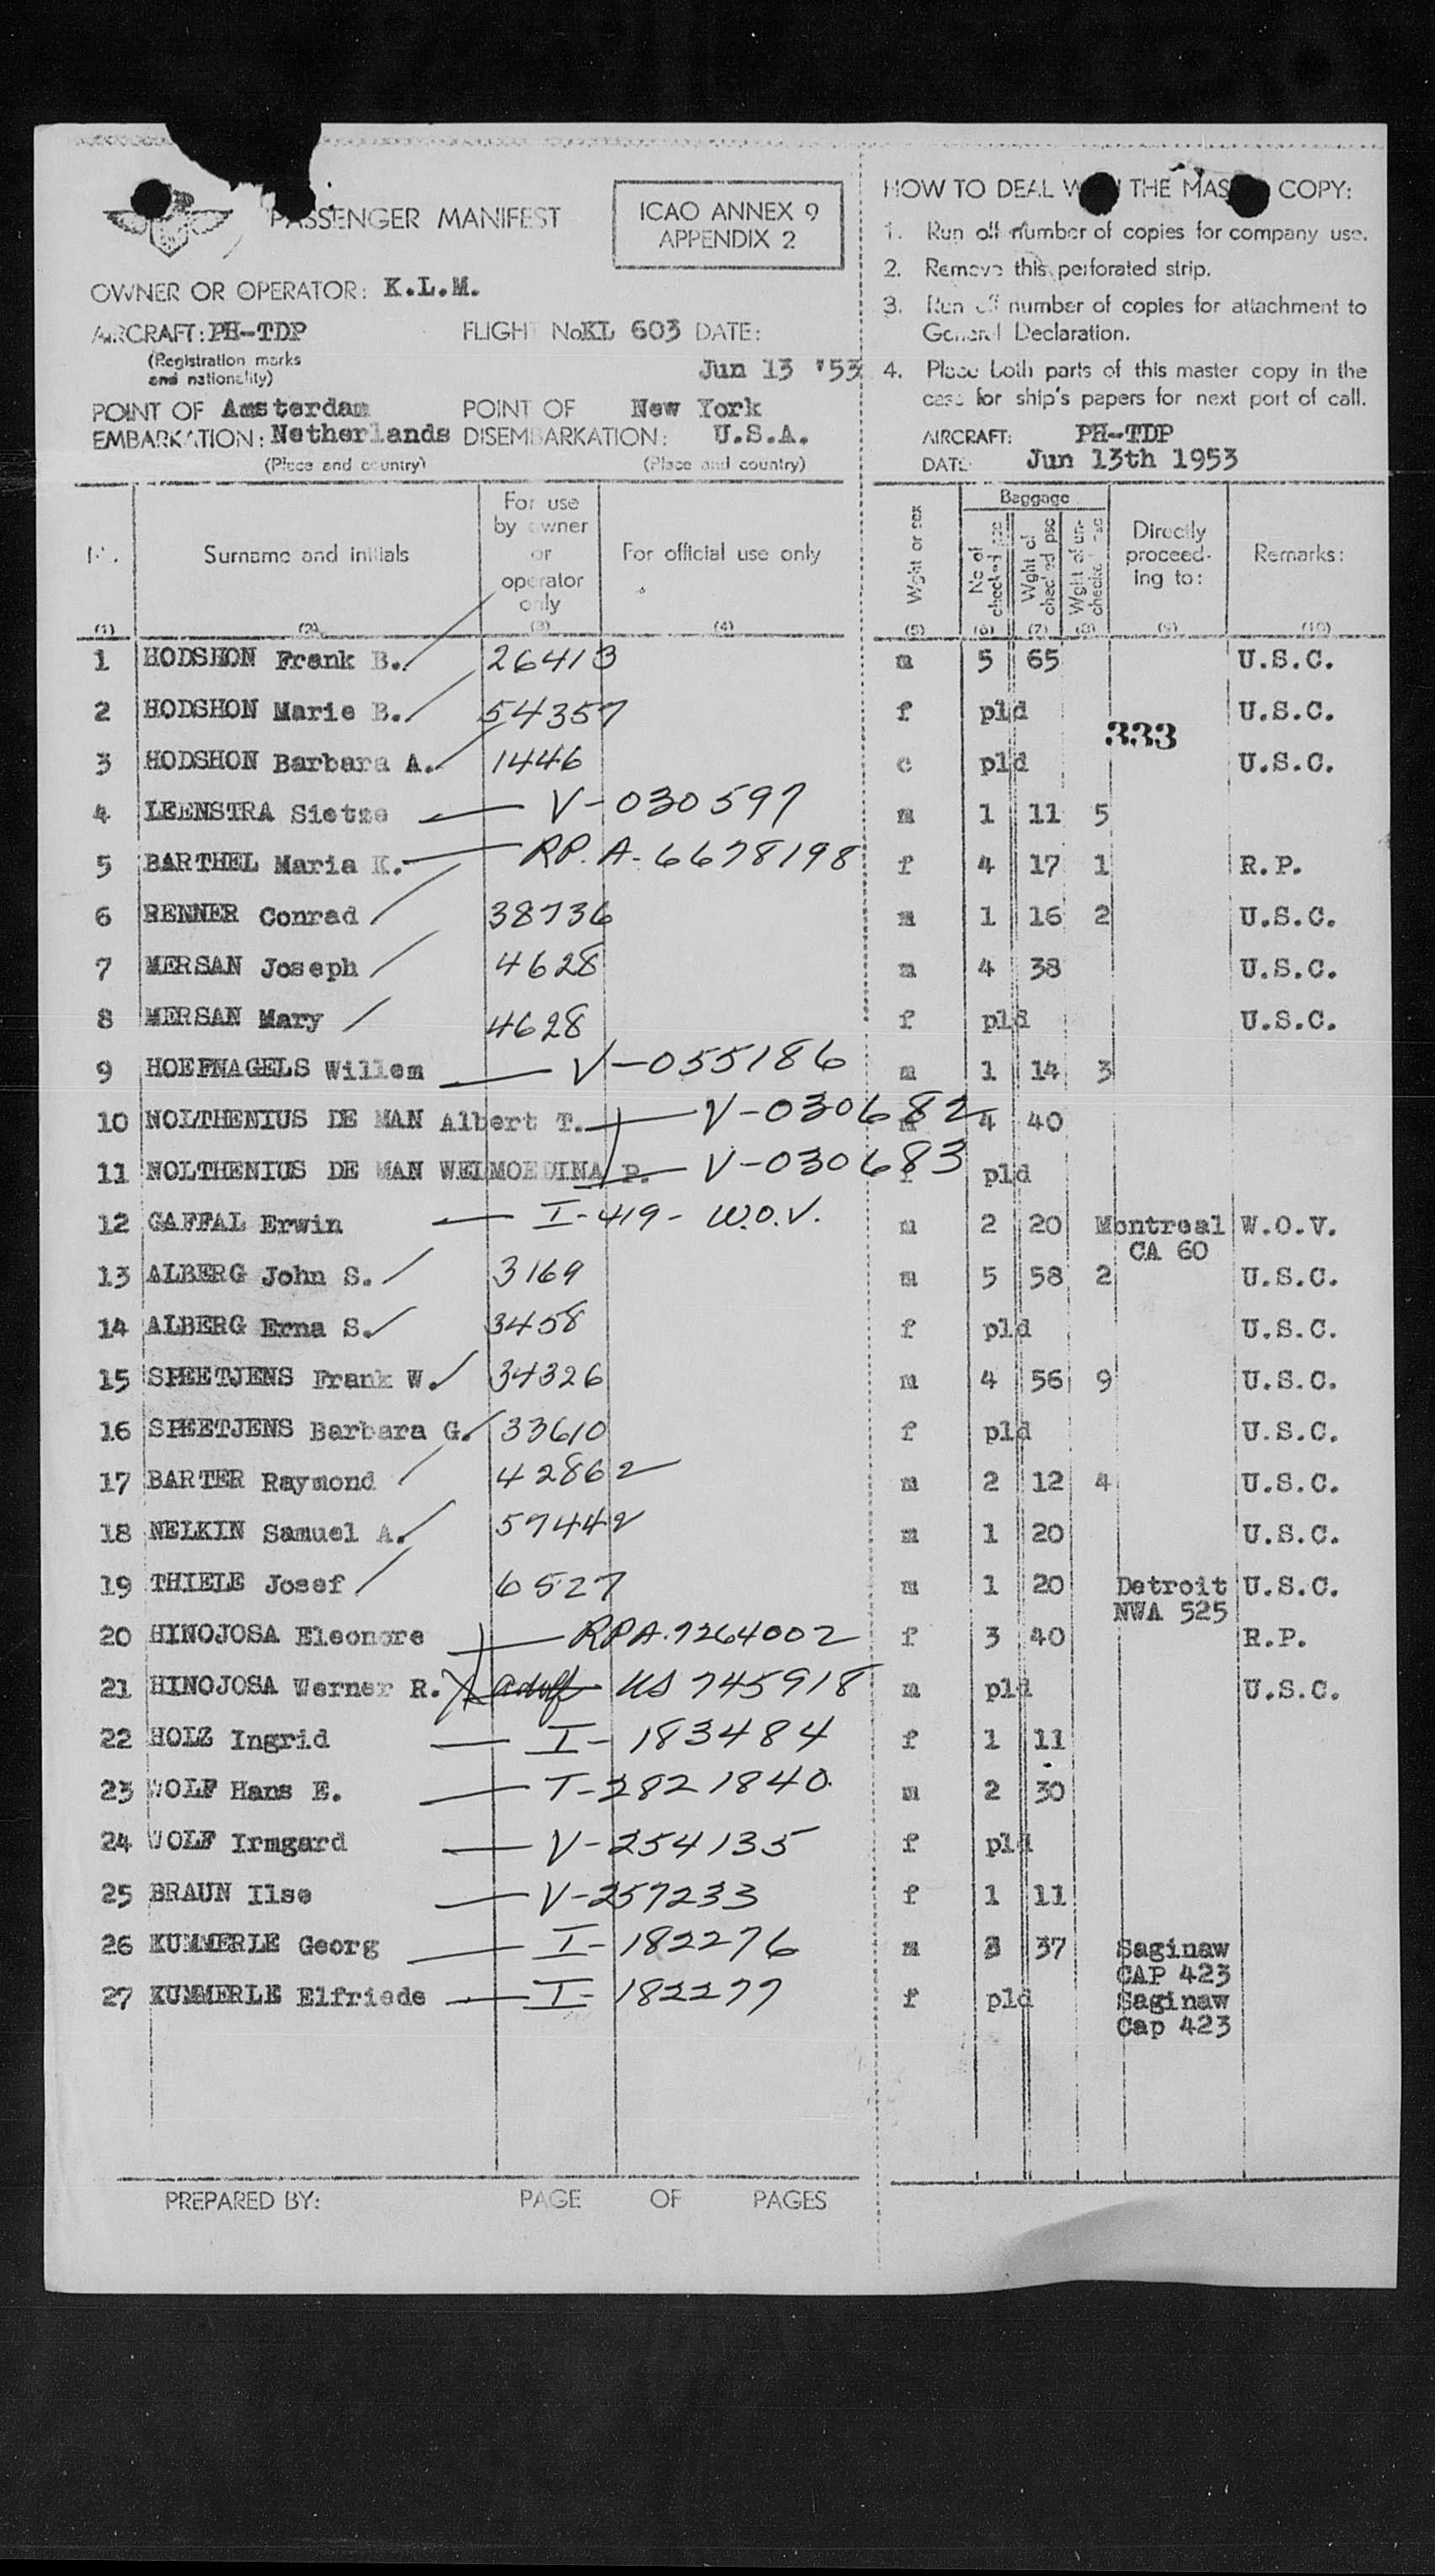 PASSENGER MANIFEST
ICAO ANNEX 9
APPENDIX 2
OWNER OR OPERATOR: K.L.M.
AIRCRAFT: PH-TDP FLIGHT No KL 603 DATE:
(Registration marks
and nationality)
Jun 13 '53
POINT OF Amsterdam POINT OF New York
EMBARKATION: Netherlands DISEMBARKATION: U.S.A.
(Place and country) (Place and country)
HOW TO DEAL THE COPY:
1. Run off number of copies for company use.
2. Remove this perforated strip.
3. Run off number of copies for attachment to
General Declaration.
4. Place both parts of this master copy in the
case for ship's papers for next port of call.
AIRCRAFT: PH-TDP
DATE: Jun 13th 1953
Surname and initials For use by owner or operator only For official use only Wght or sex Baggage No of checked pcs Wght of checked psc Wght of un-checked Directly proceed-ing to: Remarks:
(1) (2) (3) (4) (5) (6) (7) (8) (9) (10)
1 HODSHON Frank B. 26413 m 5 65 U.S.C.
2 HODSHON Marie B. 54357 f pld U.S.C.
333
3 HODSHON Barbara A. 1446 c pld U.S.C.
4 LEENSTRA Sietze V-030597 m 1 11 5
5 BARTHEL Maria K. RP. A-6678198 f 4 17 1 R.P.
6 RENNER Conrad 38736 m 1 16 2 U.S.C.
7 MERSAN Joseph 4628 m 4 38 U.S.C.
8 MERSAN Mary 4628 f pld U.S.C.
9 HOEFNAGELS Willem V-055186 m 1 14 3
10 NOLTHENIUS DE MAN Albert T. V-030682 4 40
11 NOLTHENIUS DE MAN WEIMOEDINA P. V-030683 f pld
12 GAFFAL Erwin I-419- W.O.V. m 2 20 Montreal W.O.V.
CA 60
13 ALBERG John S. 3169 m 5 58 2 U.S.C.
14 ALBERG Erna S. 3458 f pld U.S.C.
15 SPEETJENS Frank W. 34326 m 4 56 9 U.S.C.
16 SPEETJENS Barbara G. 33610 f pld U.S.C.
17 BARTER Raymond 42862 m 2 12 4 U.S.C.
18 NELKIN Samuel A. 57442 m 1 20 U.S.C.
19 THIELE Josef 6527 m 1 20 Detroit U.S.C.
NWA 525
20 HINOJOSA Eleonore RPA-7264002 f 3 40 R.P.
21 HINOJOSA Werner R. US 745918 m pld U.S.C.
22 HOLZ Ingrid I-183484 f 1 11
23 WOLF Hans E. T-2821840 m 2 30
24 WOLF Irmgard V-254135 f pld
25 BRAUN Ilse V-257233 f 1 11
26 KUMMERLE Georg I-182276 m 3 37 Saginaw
CAP 423
27 KUMMERLE Elfriede I-182277 f pld Saginaw
Cap 423
PREPARED BY: PAGE OF PAGES